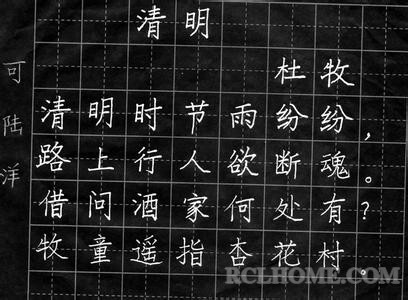 清明
杜牧
清明时节雨纷纷，
路上行人欲断魂。
借问酒家何处有？
牧童遥指杏花村。
可陆洋
RCLHOME.COM